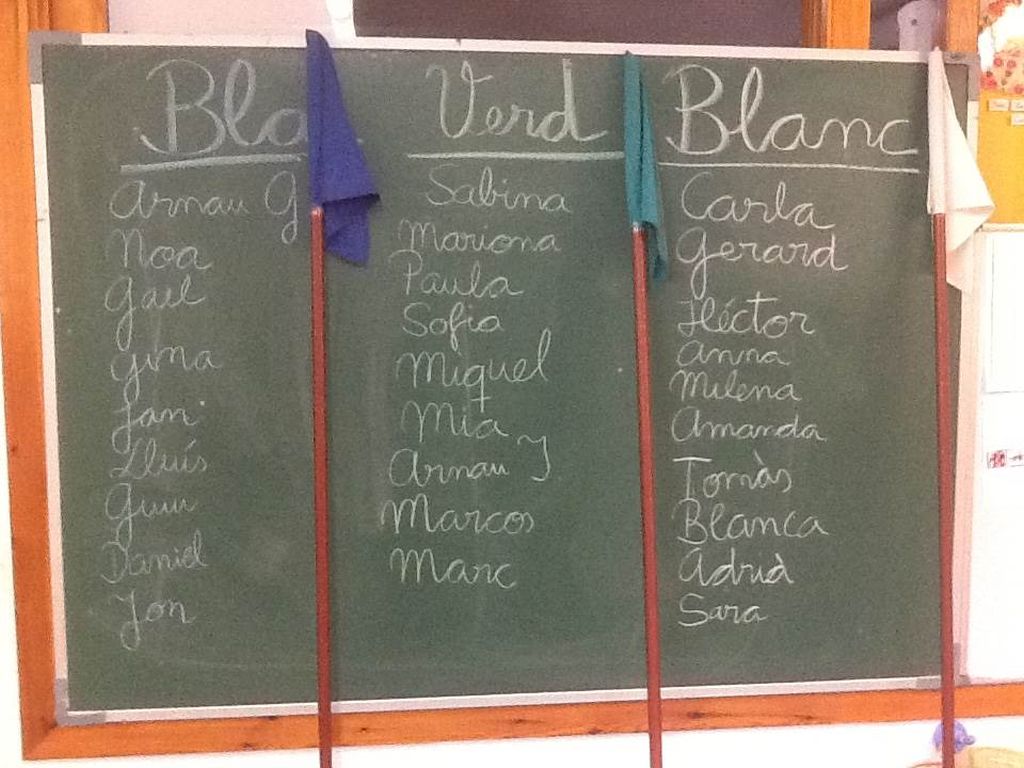 Bla
Arnau G
Noa
Gael
Gina
Jan
Lluís
Guiu
Daniel
Jon
Verd
Sabina
Mariona
Paula
Sofia
Miquel
Mia
Arnau J
Marcos
Marc
Blanc
Carla
Gerard
Héctor
Anna
Milena
Amanda
Tomàs
Blanca
Adrià
Sara